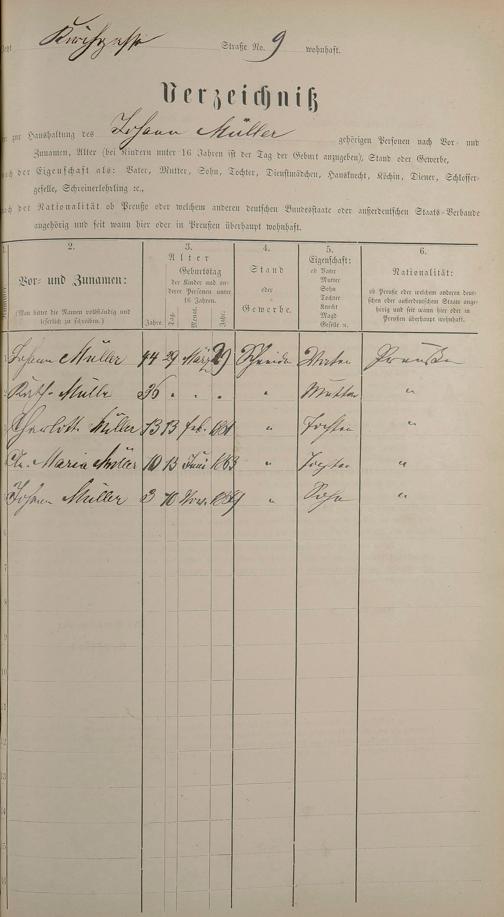 Kirchgasse Straße No. 9 wohnhaft.
Verzeichniß
zur Haushaltung des Johann Müller gehörigen Personen nach Vor- und
Zunamen, Alter (bei Kindern unter 16 Jahren ist der Tag der Geburt anzugeben), Stand oder Gewerbe,
nach der Eigenschaft als: Vater, Mutter, Sohn, Tochter, Dienstmädchen, Hausknecht, Köchin, Diener, Schlosser-
geselle, Schreinerlehrling ꝛc.,
nach der Nationalität ob Preuße oder welchem anderen deutschen Bundesstaate oder außerdeutschen Staats-Verbande
angehörig und seit wann hier oder in Preußen überhaupt wohnhaft.
2. 3. 4. 5. 6.
Vor- und Zunamen:
(Man bittet die Namen vollständig und
leserlich zu schreiben.)
Alter
Geburtstag
der Kinder und an-
derer Personen unter
16 Jahren.
Jahre. Tag. Monat. Jahr.
Stand
oder
Gewerbe.
Eigenschaft:
ob Vater
Mutter
Sohn
Tochter
Knecht
Magd
Geselle u.
Nationalität:
ob Preuße oder welchem anderen deut-
schen oder außerdeutschen Staat ange-
hörig und seit wann hier oder in
Preußen überhaupt wohnhaft.
Johann Müller 44 29 März 29 Vater Preuße
Kath. Müller 36 . . . " Mutter "
Charlott Müller 13 13 Feb. " Tochter "
Maria Müller 10 13 Juni 1863 " Tochter "
Johann Müller 3 10 Nov. 1869 " Sohn "